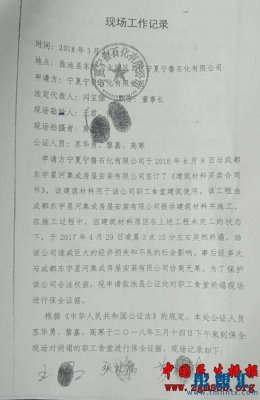 现场工作记录
时间：2018年3月
地点：盐池县 宁夏宁鲁石化有限公司
申请方：宁夏宁鲁石化有限公司
法定代表人：闫宝 董事长
现场勘 ：王君
拍摄
公证人员：苏华勇、黎嘉、高寒
申请方宁夏宁鲁石化有限公司于2016年6月8日与成都
东宇星河集成房屋安装有限公司签订了《建筑材料买卖合同
书》，该建筑材料用于该公司职工食堂建筑使用，该工程由
成都东宇星河集成房屋安装有限公司提供建筑材料并施工。
在施工过程中，因建筑材料原因在上述工程未完工的状态
下，于2017年4月29日凌晨3点15分左右突然坍塌，给
该公司造成巨大的经济损失和不良的社会影响，事后经多次
与成都东宇星河集成房屋安装有限公司协商无果，为了保护
该公司合法权益，现申请盐池县公证处对职工食堂坍塌现场
进行保全证据。
根据《中华人民共和国公证法》的规定，本处公证人员
苏华勇、黎嘉、高寒于二〇一八年三月十四日下午来到保全
现场对坍塌的职工食堂进行保全证据，现场记录如下：
中国民生播报
www.zgmsbb.org